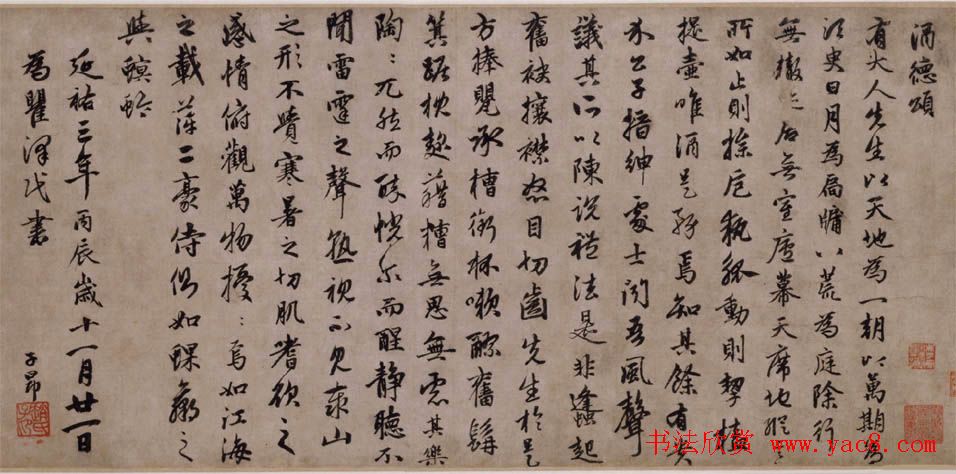 酒德頌
有大人先生以天地為一朝以萬期為
須臾日月為扃牖八荒為庭除行
無轍迹居無室廬幕天席地縱意
所如止則操卮執觚動則挈榼
提壺唯酒是務焉知其餘有貴
介公子搢紳處士聞吾風聲
議其所以陳說禮法是非蠭起
奮袂攘襟怒目切齒先生於是
方捧甖承槽銜杯漱醪奮髯
箕踞枕麴藉糟無思無慮其樂
陶〻兀然而醉恍尔而醒静聽不
聞雷霆之聲熟視不見泰山
之形不覺寒暑之切肌嗜欲之
感情俯觀萬物擾〻焉如江海
之載萍二豪侍側如蜾蠃之
與螟蛉
延祐三年丙辰歲十一月廿一日
為瞿澤民書
子昂
书法欣赏 www.yac8.com